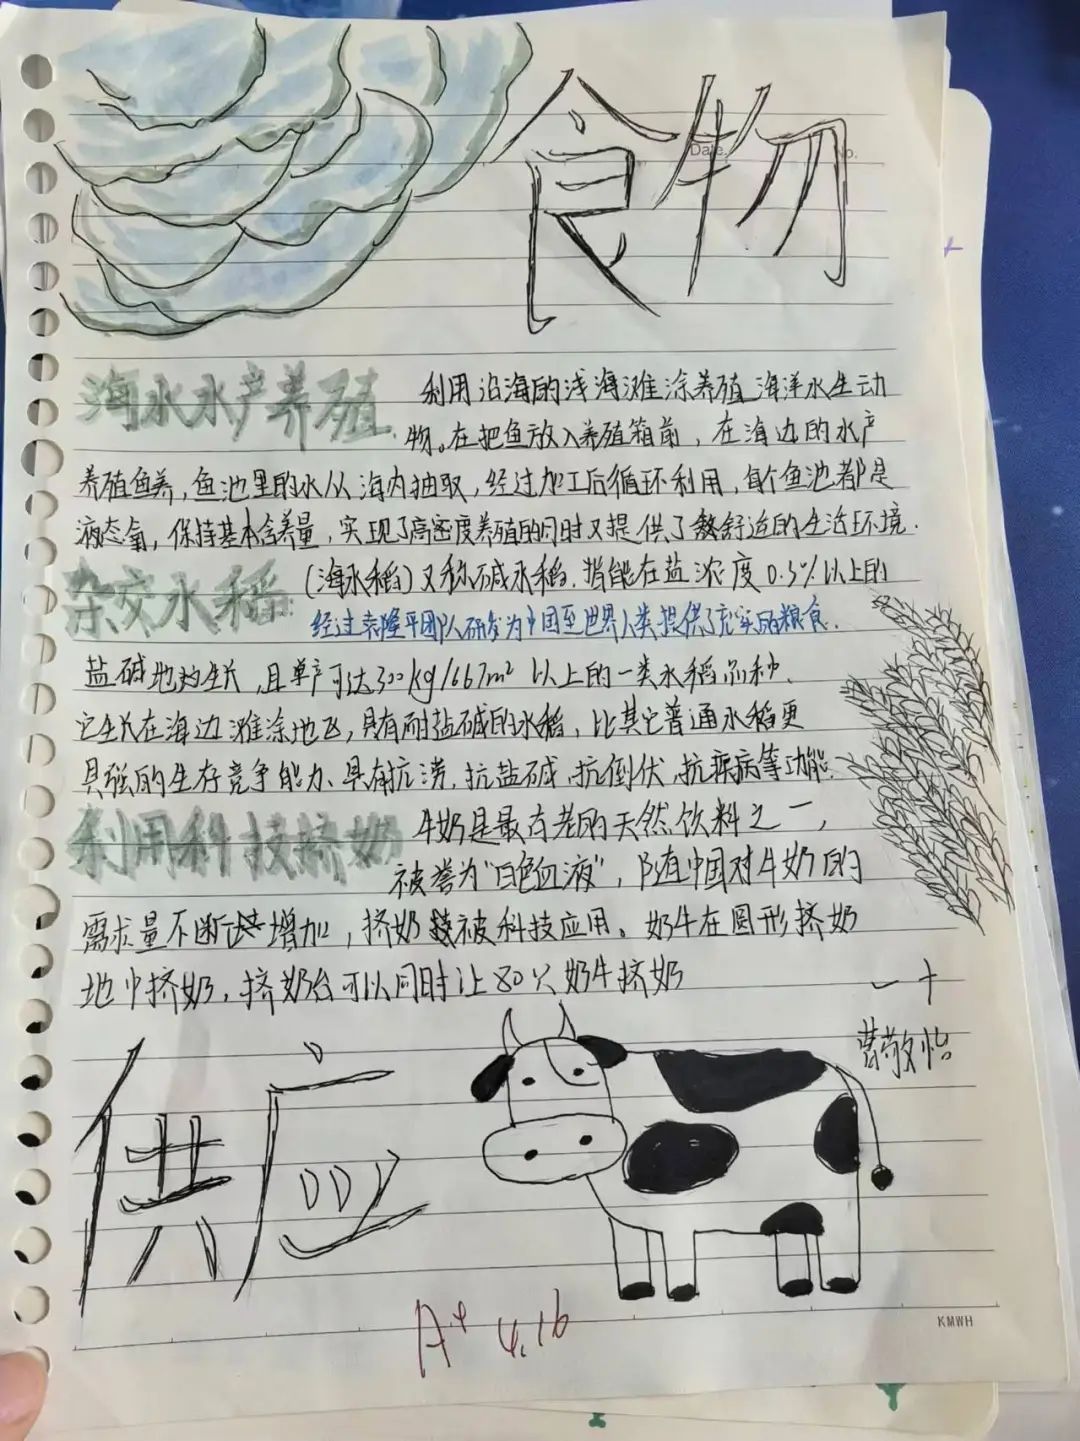 食物
Date.
No.
海水水产养殖
利用沿海的浅海滩涂养殖海洋水生动
物。在把鱼放入养殖箱前，在海边的水产
养殖鱼养，鱼池里的水从海内抽取，经过加工后循环利用，每个鱼池都是
液态氧，保持基本含养量，实现了高密度养殖的同时又提供了舒适的生活环境.
杂交水稻:
(海水稻)又称碱水稻.指能在盐浓度0.3%以上的
经过袁隆平团队研发为中国至世界人类提供了充实的粮食.
盐碱地的生长,且单产可达300kg/667m² 以上的一类水稻品种、
它生长在海边滩涂地区,具有耐盐碱的水稻，比其它普通水稻更
具强的生存竞争能力、具有抗涝.抗盐碱.抗倒伏.抗疾病等功能.
利用科技挤奶
牛奶是最古老的天然饮料之一，
被誉为"白色血液"，随中国对牛奶的
需求量不断增加，挤奶被科技应用。奶牛在圆形挤奶
地中挤奶，挤奶台可以同时让80只奶牛挤奶
敬怡
供应
A+ 4.16
KMWH